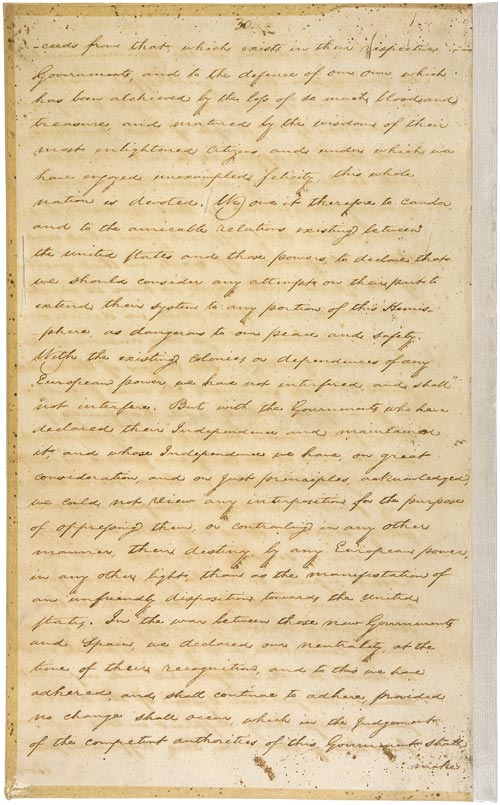 30.
-ceeds from that which exists in their respective
Governments, and to the defence of our own which
has been atchieved by the loss of so much blood and
treasure and matured by the wisdom of their
most enlightened Citizens, and under which we
have enjoyed unexampled felicity, this whole
nation is devoted. We owe it therefore to candor
and to the amicable relations existing between
the united States and those powers, to declare that
we should consider any attempt on their part to
extend their system to any portion of this Hemis-
-phere, as dangerous to our peace and safety.
With the existing Colonies or dependencies of any
European power, we have not interfered, and shall
not interfere. But with the Governments who have
declared their Independence, and maintained
it and whose Independence we have, on great
consideration, and on just principles, acknowledged,
we could not view any interposition for the purpose
of oppressing them, or controuling in any other
manner, their destiny, by any European power,
in any other light, than as the manifestation of
an unfriendly disposition towards the United
States. In the war between those new Governments
and Spain, we declared our neutrality, at the
time of their recognition, and to this we have
adhered, and shall continue to adhere, provided
no change shall occur, which in the judgement
of the competent authorities of this Government shall
make